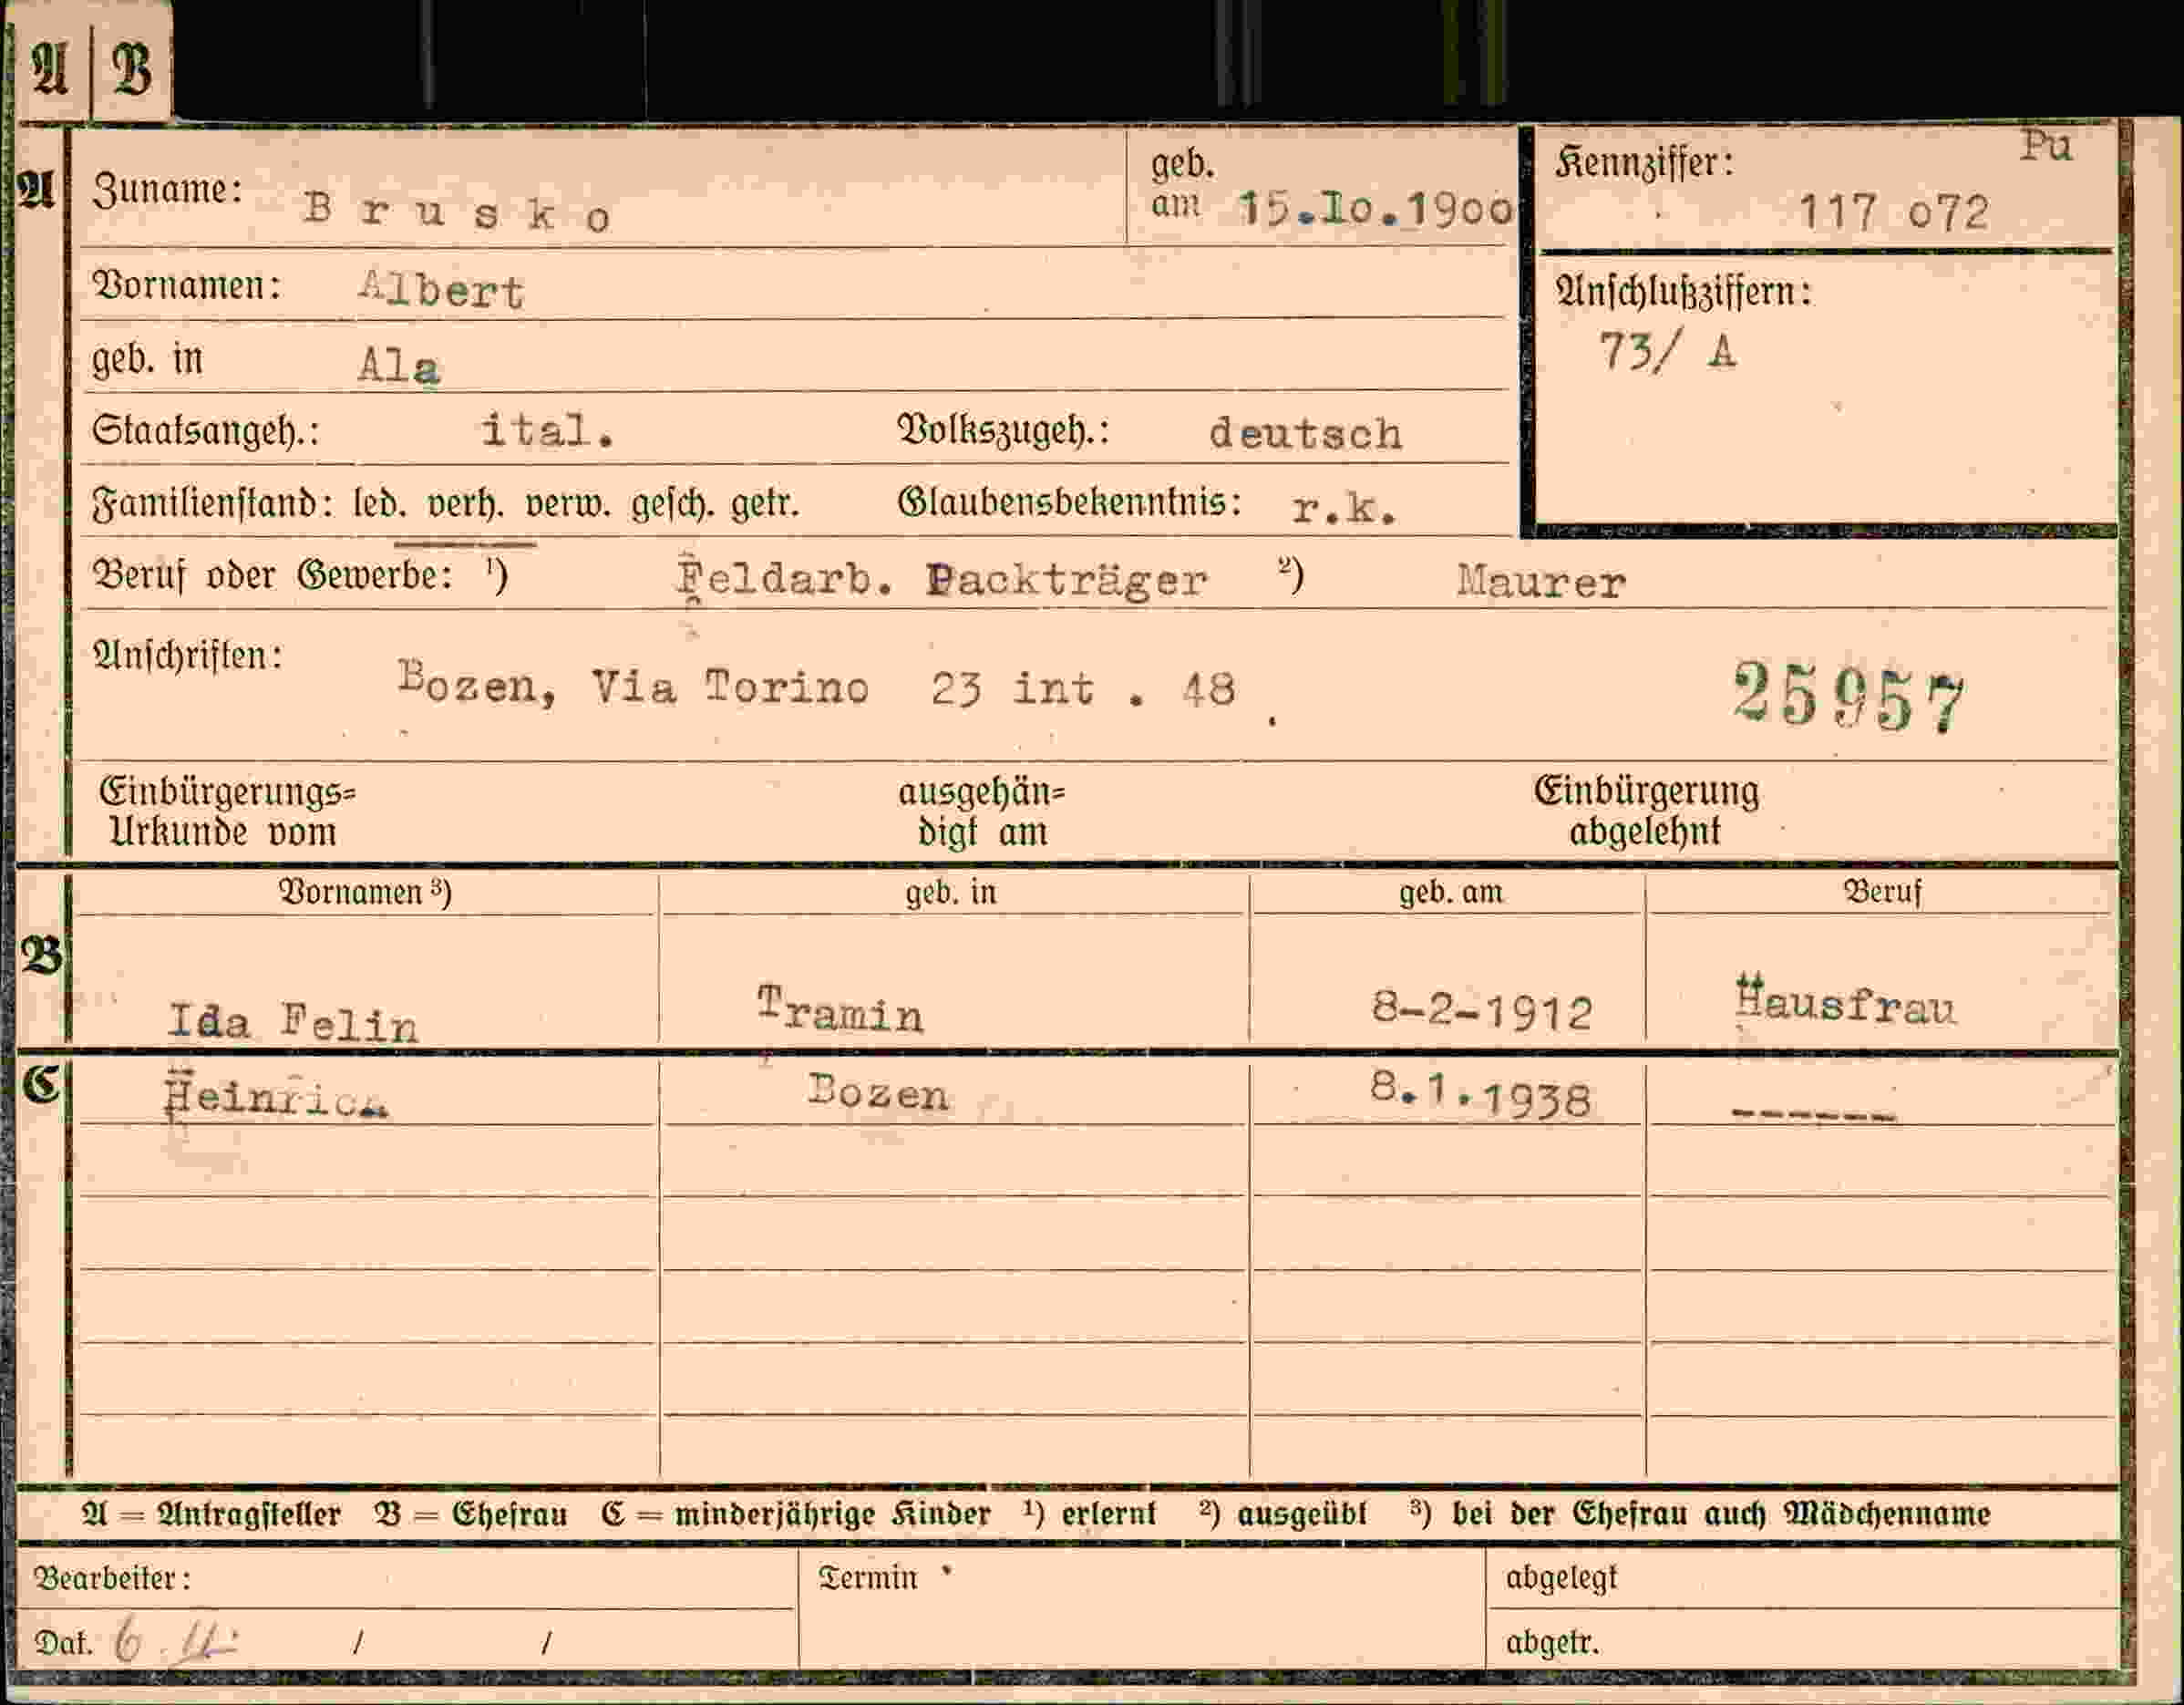 A | B
Pu
A Zuname: Brusko geb. am 15.1o.19oo Kennziffer: 117 o72
Vornamen: Albert Anschlußziffern:
geb. in Ala 73/ A
Staatsangeh.: ital. Volkszugeh.: deutsch
Familienstand: led. verh. verw. gesch. getr. Glaubensbekenntnis: r.k.
Beruf oder Gewerbe: ¹) Feldarb. Packträger ²) Maurer
Anschriften: Bozen, Via Torino 23 int . 48 .
25957
Einbürgerungs= ausgehän= Einbürgerung
Urkunde vom digt am abgelehnt
Vornamen ³) geb. in geb. am Beruf
B Ida Felin Tramin 8-2-1912 Hausfrau
C Heinrich Bozen 8.1.1938 ------
A = Antragsteller B = Ehefrau C = minderjährige Kinder ¹) erlernt ²) ausgeübt ³) bei der Ehefrau auch Mädchenname
Bearbeiter: Termin abgelegt
Dat. 6.11. / / abgetr.